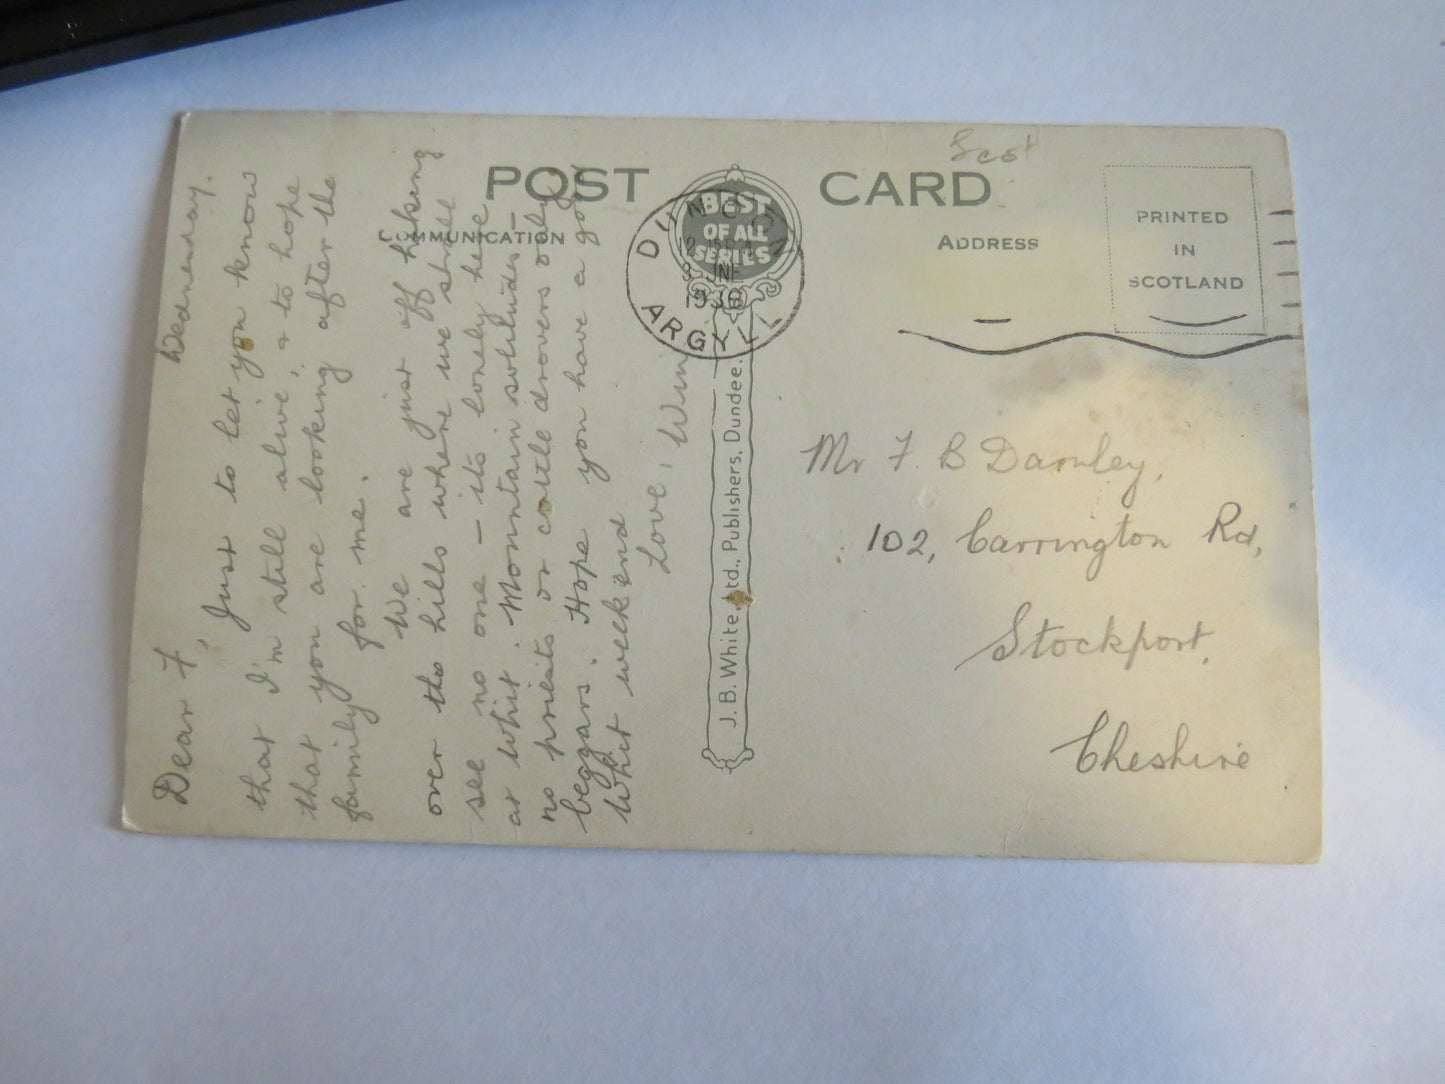 POST CARD
Scot
COMMUNICATION
ADDRESS
PRINTED
IN
SCOTLAND
BEST
OF ALL
SERIES
DUNOON
3 JNE
1936
ARGYLL
J. B. White, Ltd., Publishers, Dundee.
Wednesday.
Dear F,
Just to let you know
that I'm still alive, & to hope
that you are looking after the
family for me.
We are just off hiking
over the hills where we shall
see no one – its lonely here
at Whit. Mountain solitudes –
no priests or cattle drovers only
beggars. Hope you have a good
Whit week end
Love, Win
Mr F. B Darnley,
102, Carrington Rd,
Stockport,
Cheshire